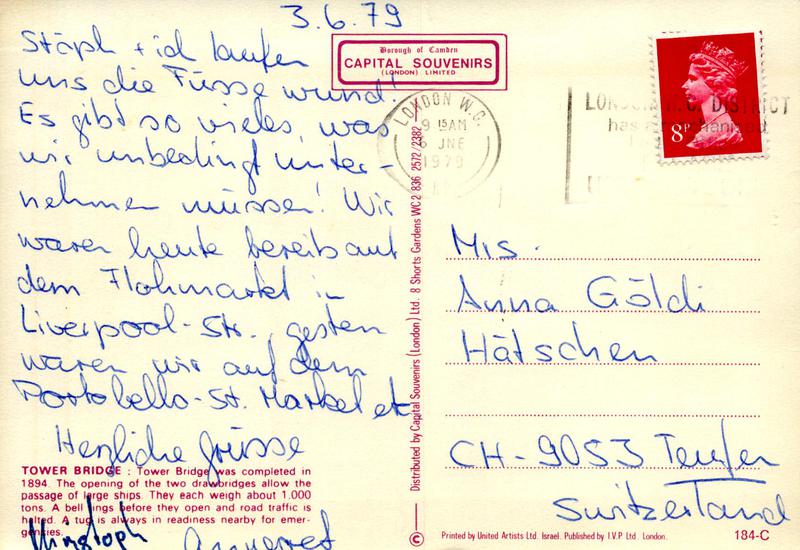 3.6.79
Stöph + ich laufen
uns die Füsse wund!
Es gibt so vieles, was
wir unbedingt unter-
nehmen müssen! Wir
waren heute bereits auf
dem Flohmarkt in
Liverpool-Str., gestern
waren wir auf dem
Portobello-St. Market etc
Herzliche Grüsse
Christoph Anneret
TOWER BRIDGE : Tower Bridge was completed in
1894. The opening of the two drawbridges allow the
passage of large ships. They each weigh about 1.000
tons. A bell rings before they open and road traffic is
halted. A tug is always in readiness nearby for emer-
gencies.
Borough of Camden
CAPITAL SOUVENIRS
(LONDON) LIMITED
LONDON W.C.
9 15 AM
6 JNE
1979
LONDON W.C. DISTRICT
has
8P
Distributed by Capital Souvenirs (London) Ltd. 8 Shorts Gardens WC2 836 2572/2382
Mrs.
Anna Göldi
Hätschen
CH-9053 Teufen
Switzerland
© Printed by United Artists Ltd. Israel. Published by I.V.P Ltd. London.
184-C